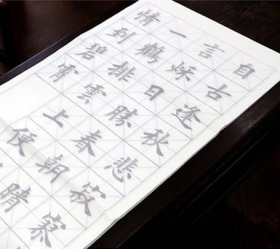 自古逢秋悲寂寥
言秋日勝春朝晴
一鶴排雲上便
情到碧霄